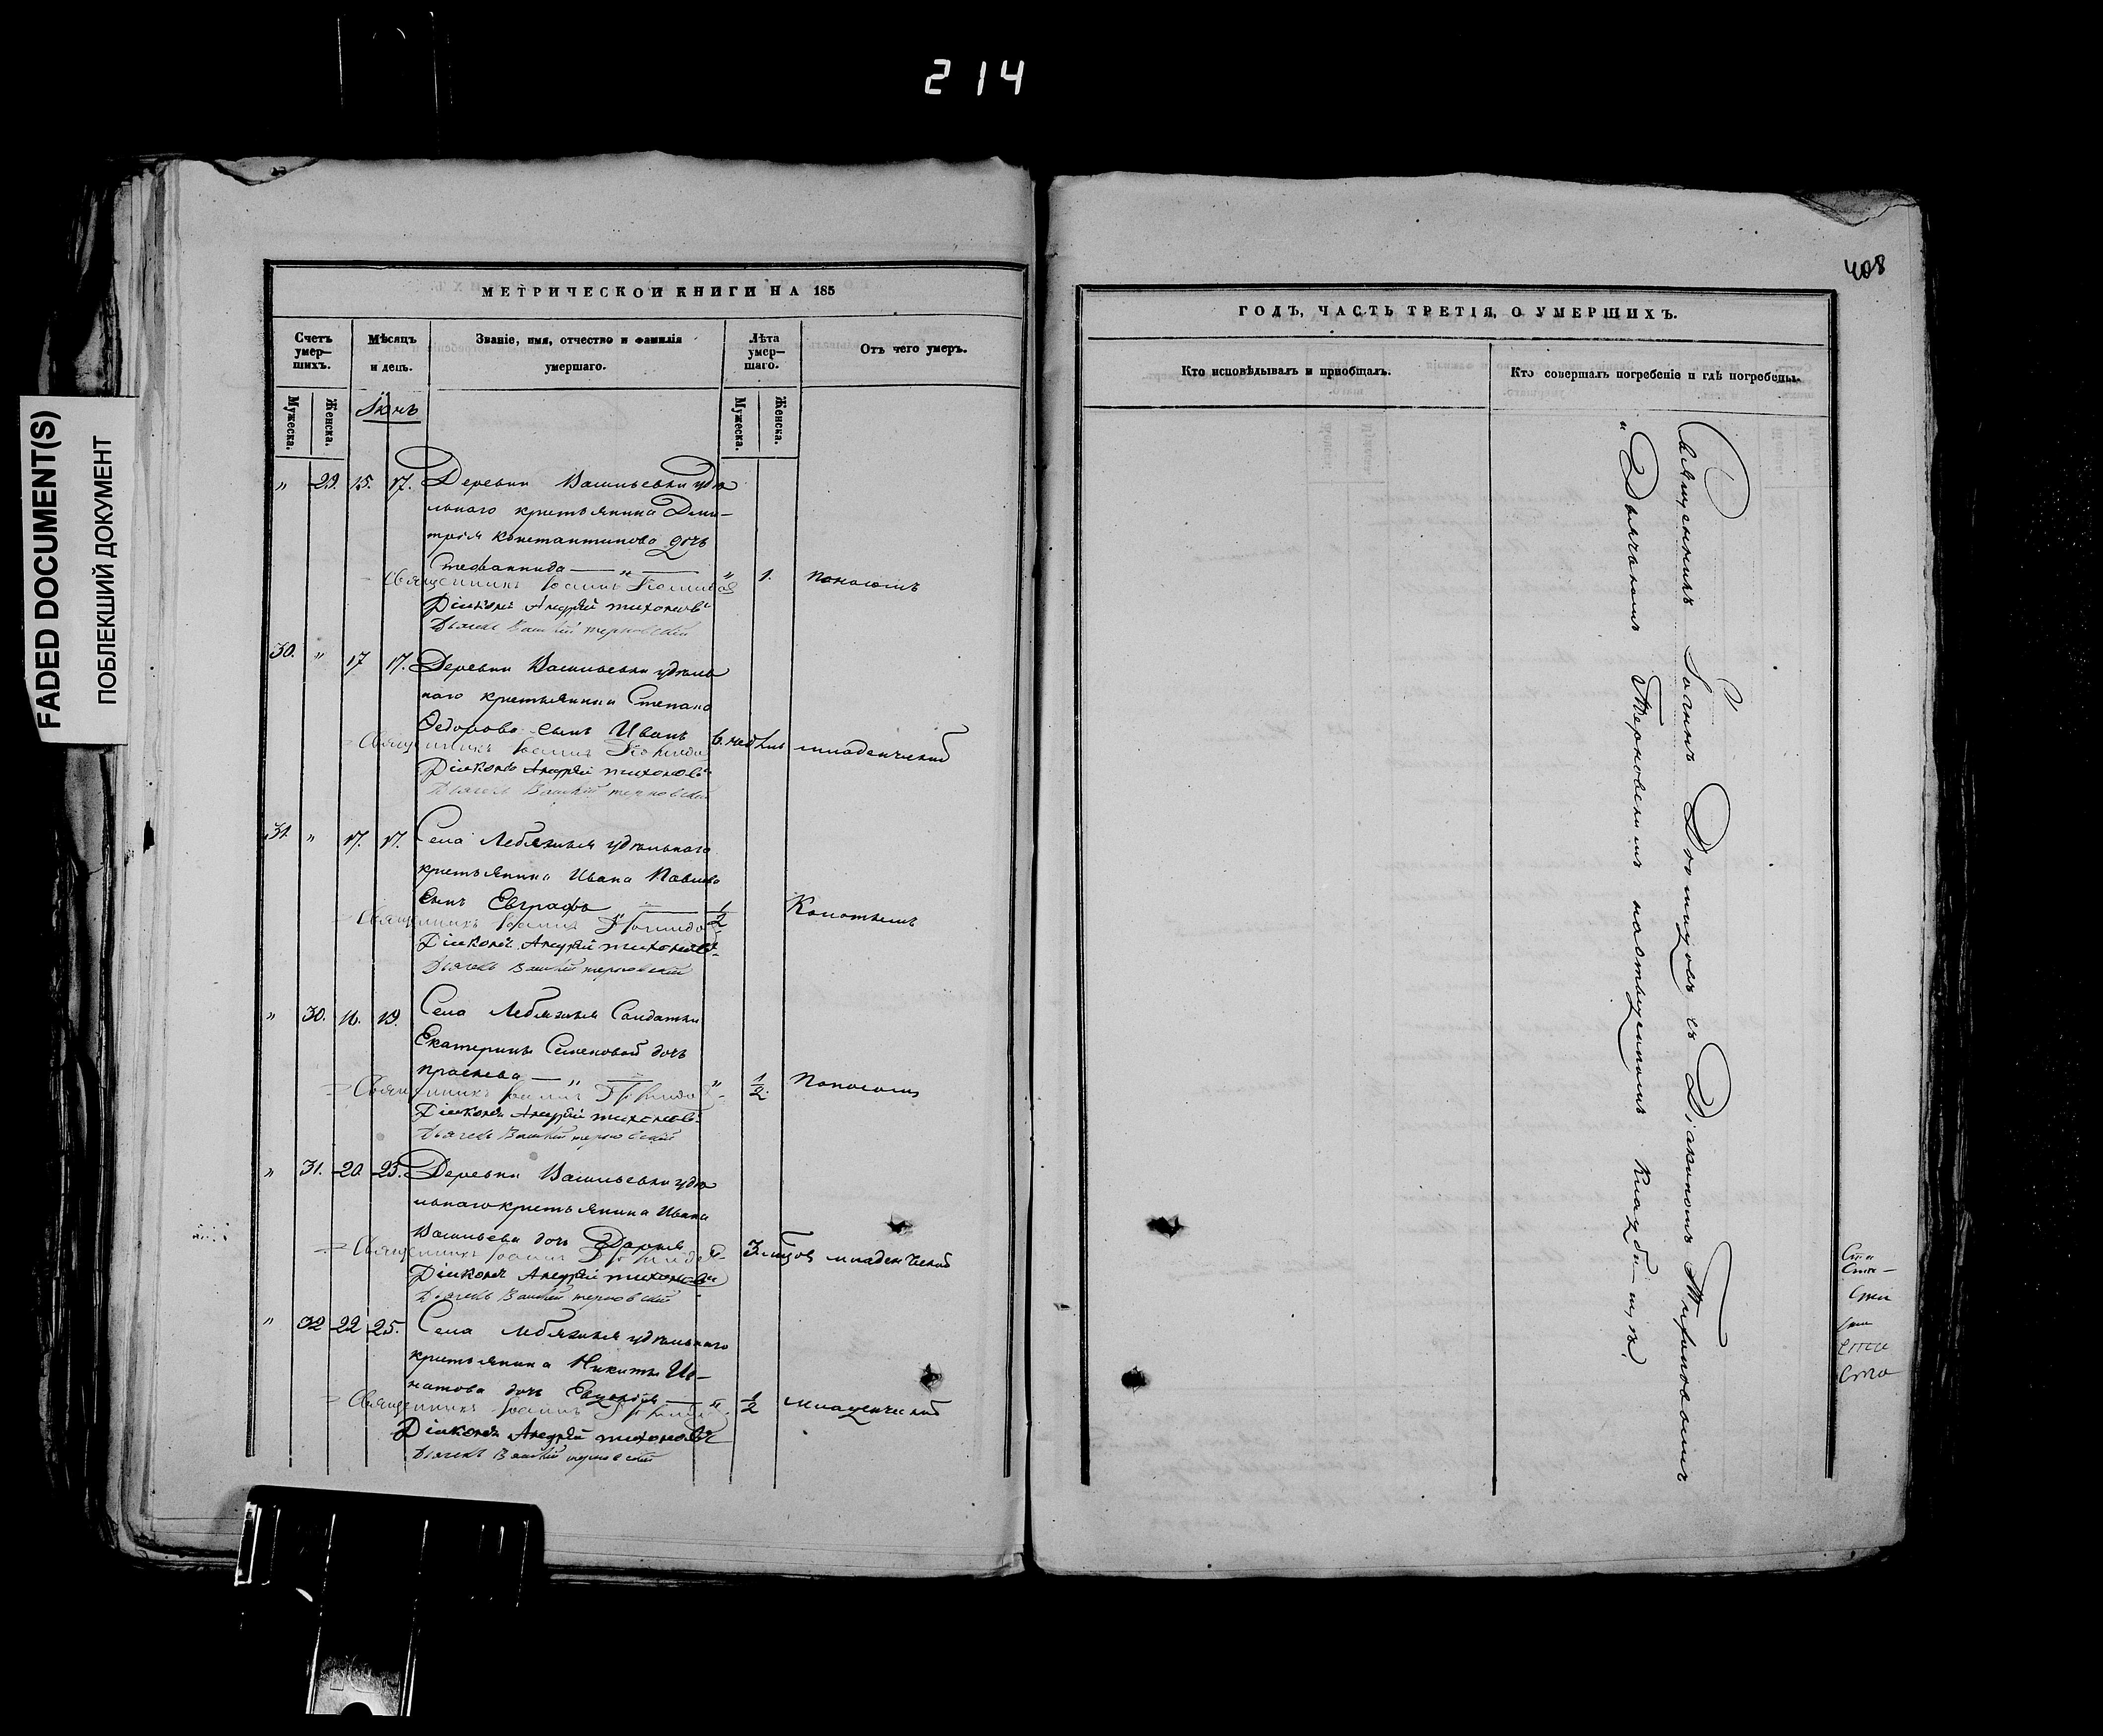 214
FADED DOCUMENT(S)
ПОБЛЕКШИЙ ДОКУМЕНТ
МЕТРИЧЕСКОЙ КНИГИ НА 185
Счетъ умер-шихъ.
Мужеска.
Женска.
Мѣсяцъ и день.
Званіе, имя, отчество и фамилія умершаго.
Лѣта умер-шаго.
Мужеска.
Женска.
Отъ чего умеръ.
Іюнь
" 29. 15. 17. Деревни Васильевки удѣ
льнаго крестьянина Дми-
трія Константинова дочь
Стефаннида — " — " 1. поносомъ
Священникъ Іоаннъ
Діаконъ Андрей Тихоновъ
Дьячекъ Василій Терновскій
30. " 17 17. Деревни Васильевки удѣль
наго крестьянина Степана
Федорова сынъ Иванъ 6. недѣль младенческой
Священникъ Іоаннъ
Діаконъ Андрей Тихоновъ
Дьячекъ Василій Терновскій
31. " 17. 17. Села Лебяжья удѣльнаго
крестьянина Ивана Павлова
сынъ Евграфъ 1/2
Священникъ Іоаннъ
Діаконъ Андрей Тихоновъ
Дьячекъ Василій Терновскій
" 30. 16. 19. Села Лебяжья Солдатки
Екатерины Семеновой дочь
— " — " 1/2. Поносомъ
Священникъ Іоаннъ
Діаконъ Андрей Тихоновъ
Дьячекъ Василій Терновскій
" 31. 20 23. Деревни Васильевки удѣ
льнаго крестьянина Ивана
Васильева дочь Дарья " 3 младенческой
Священникъ Іоаннъ
Діаконъ Андрей Тихоновъ
Дьячекъ Василій Терновскій
" 32 22 25. Села Лебяжья удѣльнаго
крестьянина Никиты Иг-
натова дочь — " 1/2 младенческой
Священникъ Іоаннъ
Діаконъ Андрей Тихоновъ
Дьячекъ Василій Терновскій
408
ГОДЪ, ЧАСТЬ ТРЕТІЯ, О УМЕРШИХЪ.
Кто исповѣдывалъ и пріобщалъ.
Кто совершалъ погребеніе и гдѣ погребены.
Священникъ Іоаннъ съ Діакономъ Тихоновымъ
и Дьячкомъ Терновскимъ на